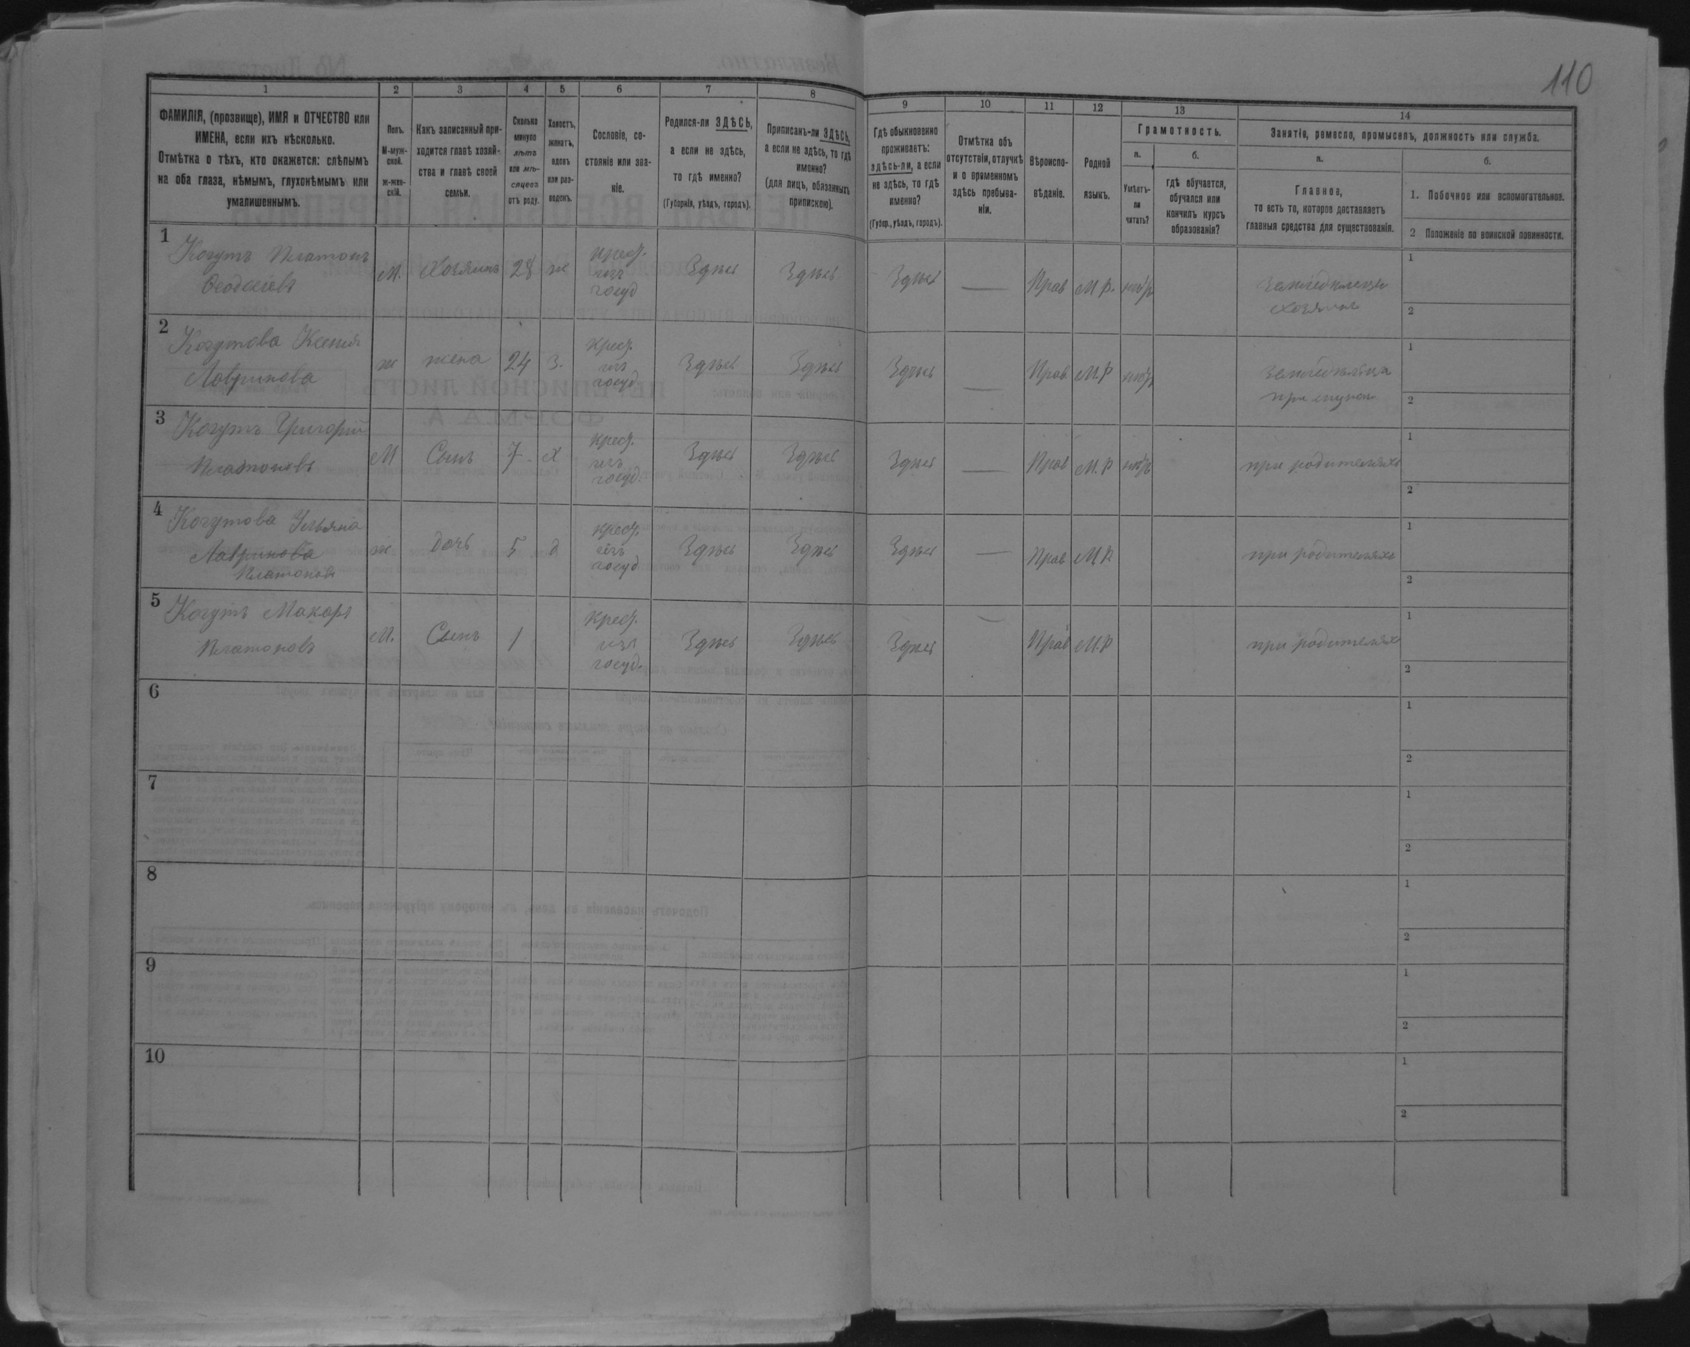 110
1
2
3
4
5
6
7
8
9
10
11
12
13
14
ФАМИЛІЯ, (прозвище), ИМЯ и ОТЧЕСТВО или
ИМЕНА, если ихъ нѣсколько.
Отмѣтка о тѣхъ, кто окажется: слѣпымъ
на оба глаза, нѣмымъ, глухонѣмымъ или
умалишеннымъ.
Полъ.
М-муж-
ской.
ж-жен-
скій.
Какъ записанный при-
ходится главѣ хозяй-
ства и главѣ своей
семьи.
Сколько
минуло
лѣтъ
или мѣ-
сяцевъ
отъ роду.
Холостъ,
женатъ,
вдовъ
или раз-
веденъ.
Сословіе, со-
стояніе или зва-
ніе.
Родился-ли ЗДѢСЬ,
а если не здѣсь,
то гдѣ именно?
(Губернія, уѣздъ, городъ).
Приписанъ-ли ЗДѢСЬ,
а если не здѣсь, то гдѣ
именно?
(для лицъ, обязанныхъ
припискою).
Гдѣ обыкновенно
проживаетъ:
здѣсь-ли, а если
не здѣсь, то гдѣ
именно?
(Губер., уѣздъ, городъ).
Отмѣтка объ
отсутствіи, отлучкѣ
и о временномъ
здѣсь пребыва-
ніи.
Вѣроиспо-
вѣданіе.
Родной
языкъ.
Грамотность.
а.
Умѣетъ-
ли
читать?
б.
гдѣ обучается,
обучался или
кончилъ курсъ
образованія?
Занятіе, ремесло, промыселъ, должность или служба.
а.
Главное,
то есть то, которое доставляетъ
главныя средства для существованія.
б.
1. Побочное или вспомогательное.
2 Положеніе по воинской повинности.
1
Когутъ Платонъ
Феодосіевъ
М.
Хозяинъ
28
ж
крест.
изъ
госуд
Здѣсь
Здѣсь
Здѣсь
—
Прав
М.Р.
нѣтъ
земледѣлецъ
хозяинъ
1
2
2
Когутова Ксенія
Лавринова
ж
жена
24
З.
крест.
изъ
госуд
Здѣсь
Здѣсь
Здѣсь
—
Прав
М.Р
нѣтъ
при мужѣ
1
2
3
Когутъ Григорій
Платоновъ
М
Сынъ
7
х
крест.
изъ
госуд.
Здѣсь
Здѣсь
Здѣсь
—
Прав
М.Р
нѣтъ
при родителяхъ
1
2
4
Когутова Ульяна
Лавринова
Платонов
ж
дочь
5
д
крест.
изъ
госуд
Здѣсь
Здѣсь
Здѣсь
—
Прав
М.Р
при родителяхъ
1
2
5
Когутъ Макаръ
Платоновъ
М.
Сынъ
1
крест.
изъ
госуд.
Здѣсь
Здѣсь
Здѣсь
—
Прав
М.Р
при родителяхъ
1
2
6
1
2
7
1
2
8
1
2
9
1
2
10
1
2